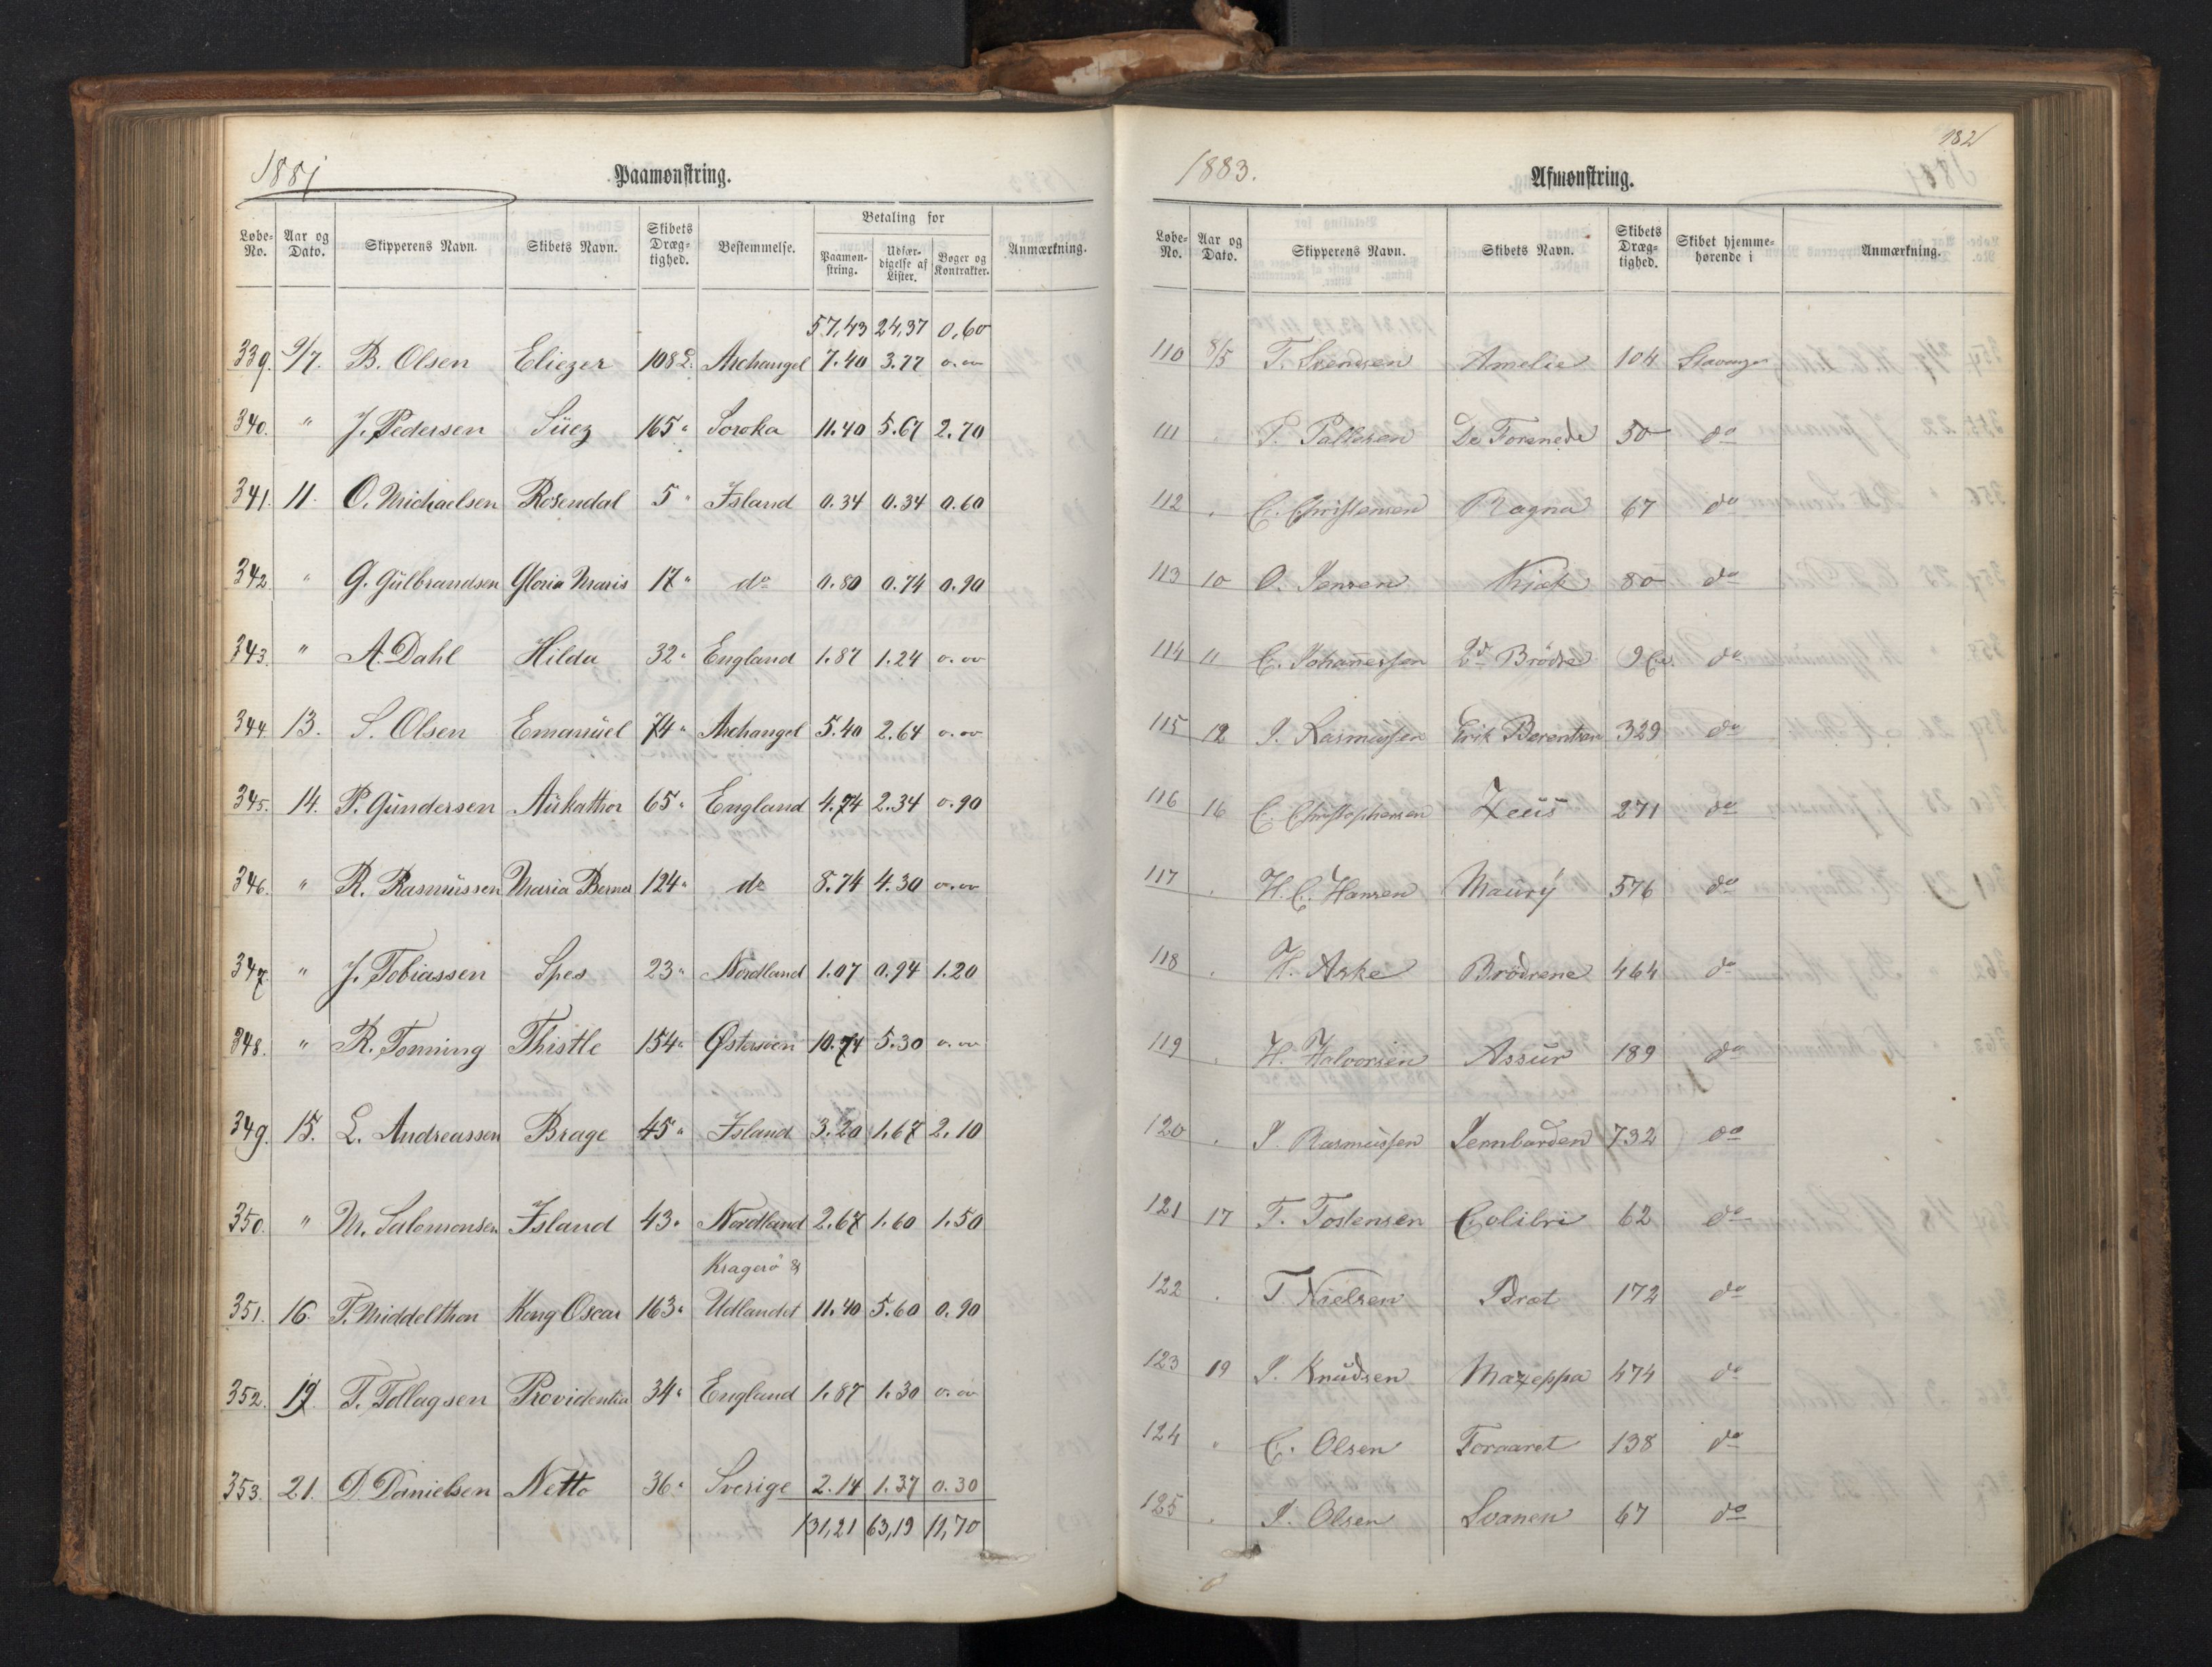 1881
Paamønstring.
Løbe-No. Aar og Dato. Skipperens Navn. Skibets Navn. Skibets Dræg-tighed. Bestemmelse. Betaling for Paamøn-string. Udfær-digelse af Lister. Bøger og Kontrakter. Anmærkning.
57,43 24,37 0,60
339. 9/7. B. Olsen Eliezer 108 Archangel 7.40 3.77 0.00
340. " J. Pedersen Süez 165 " Soroka 11.40 5.67 2.70
341. 11. O. Michaelsen Rosendal 5 " Island 0.34 0.34 0.60
342. " G. Gülbrandsen Gloria Maris 17 " do 0.80 0.74 0.90
343. " A. Dahl Hilda 32 " England 1.87 1.24 0.00
344. 13. S. Olsen Emanüel 74 " Archangel 5.40 2.64 0.00
345. 14. P. Gündersen Aükathor 65 " England 4.74 2.34 0.90
346. " R. Rasmüssen Maria Berner 124 " do 8.74 4.30 0.00
347. " J. Tobiassen Spes 23 " Nordland 1.07 0.94 1.20
348. " R. Tonning Thistle 154 " Østersöen 10.74 5.30 0.00
349. 15. L. Andreassen Brage 45 " Island 3.20 1.67 2.10
350. " M. Salomonsen Island 43 " Nordland 2.67 1.60 1.50
Kragerö &
351. 16. T. Middelthon Kong Oscar 163 " Udlandet 11.40 5.60 0.90
352. 19. T. Tollagsen Providentia 34 " England 1.87 1.30 0.00
353. 21. D. Danielsen Netto 36 " Sverige 2.14 1.37 0.30
131,21 63,19 11,70
182
1883.
Afmønstring.
Løbe-No. Aar og Dato. Skipperens Navn. Skibets Navn. Skibets Dræg-tighed. Skibet hjemme-hørende i Anmærkning.
110 8/5 T. Svendsen Amelie 104 Stavanger
111 . P. Pallesen De Forenede 50 do
112 . C. Christensen Ragna 67 do
113 10 O. Jensen Kjæk 80 do
114 11 C. Johannessen 2de Brödre 9 Cl. do
115 12 J. Rasmussen Erik Berentsen 329 do
116 16 C. Christophersen Zeüs 271 do
117 . H. C. Hansen Maüry 576 do
118 . H. Aske Brödrene 464 do
119 . H. Halvorsen Assür 189 do
120 . J. Rasmüssen Jernbarden 732 do
121 17 T. Tostensen Colibri 62 do
122 . T. Nielsen Brat 172 do
123 19 J. Knüdsen Mazeppa 474 do
124 " C. Olsen Foraaret 138 do
125 . J. Olsen Svanen 67 do